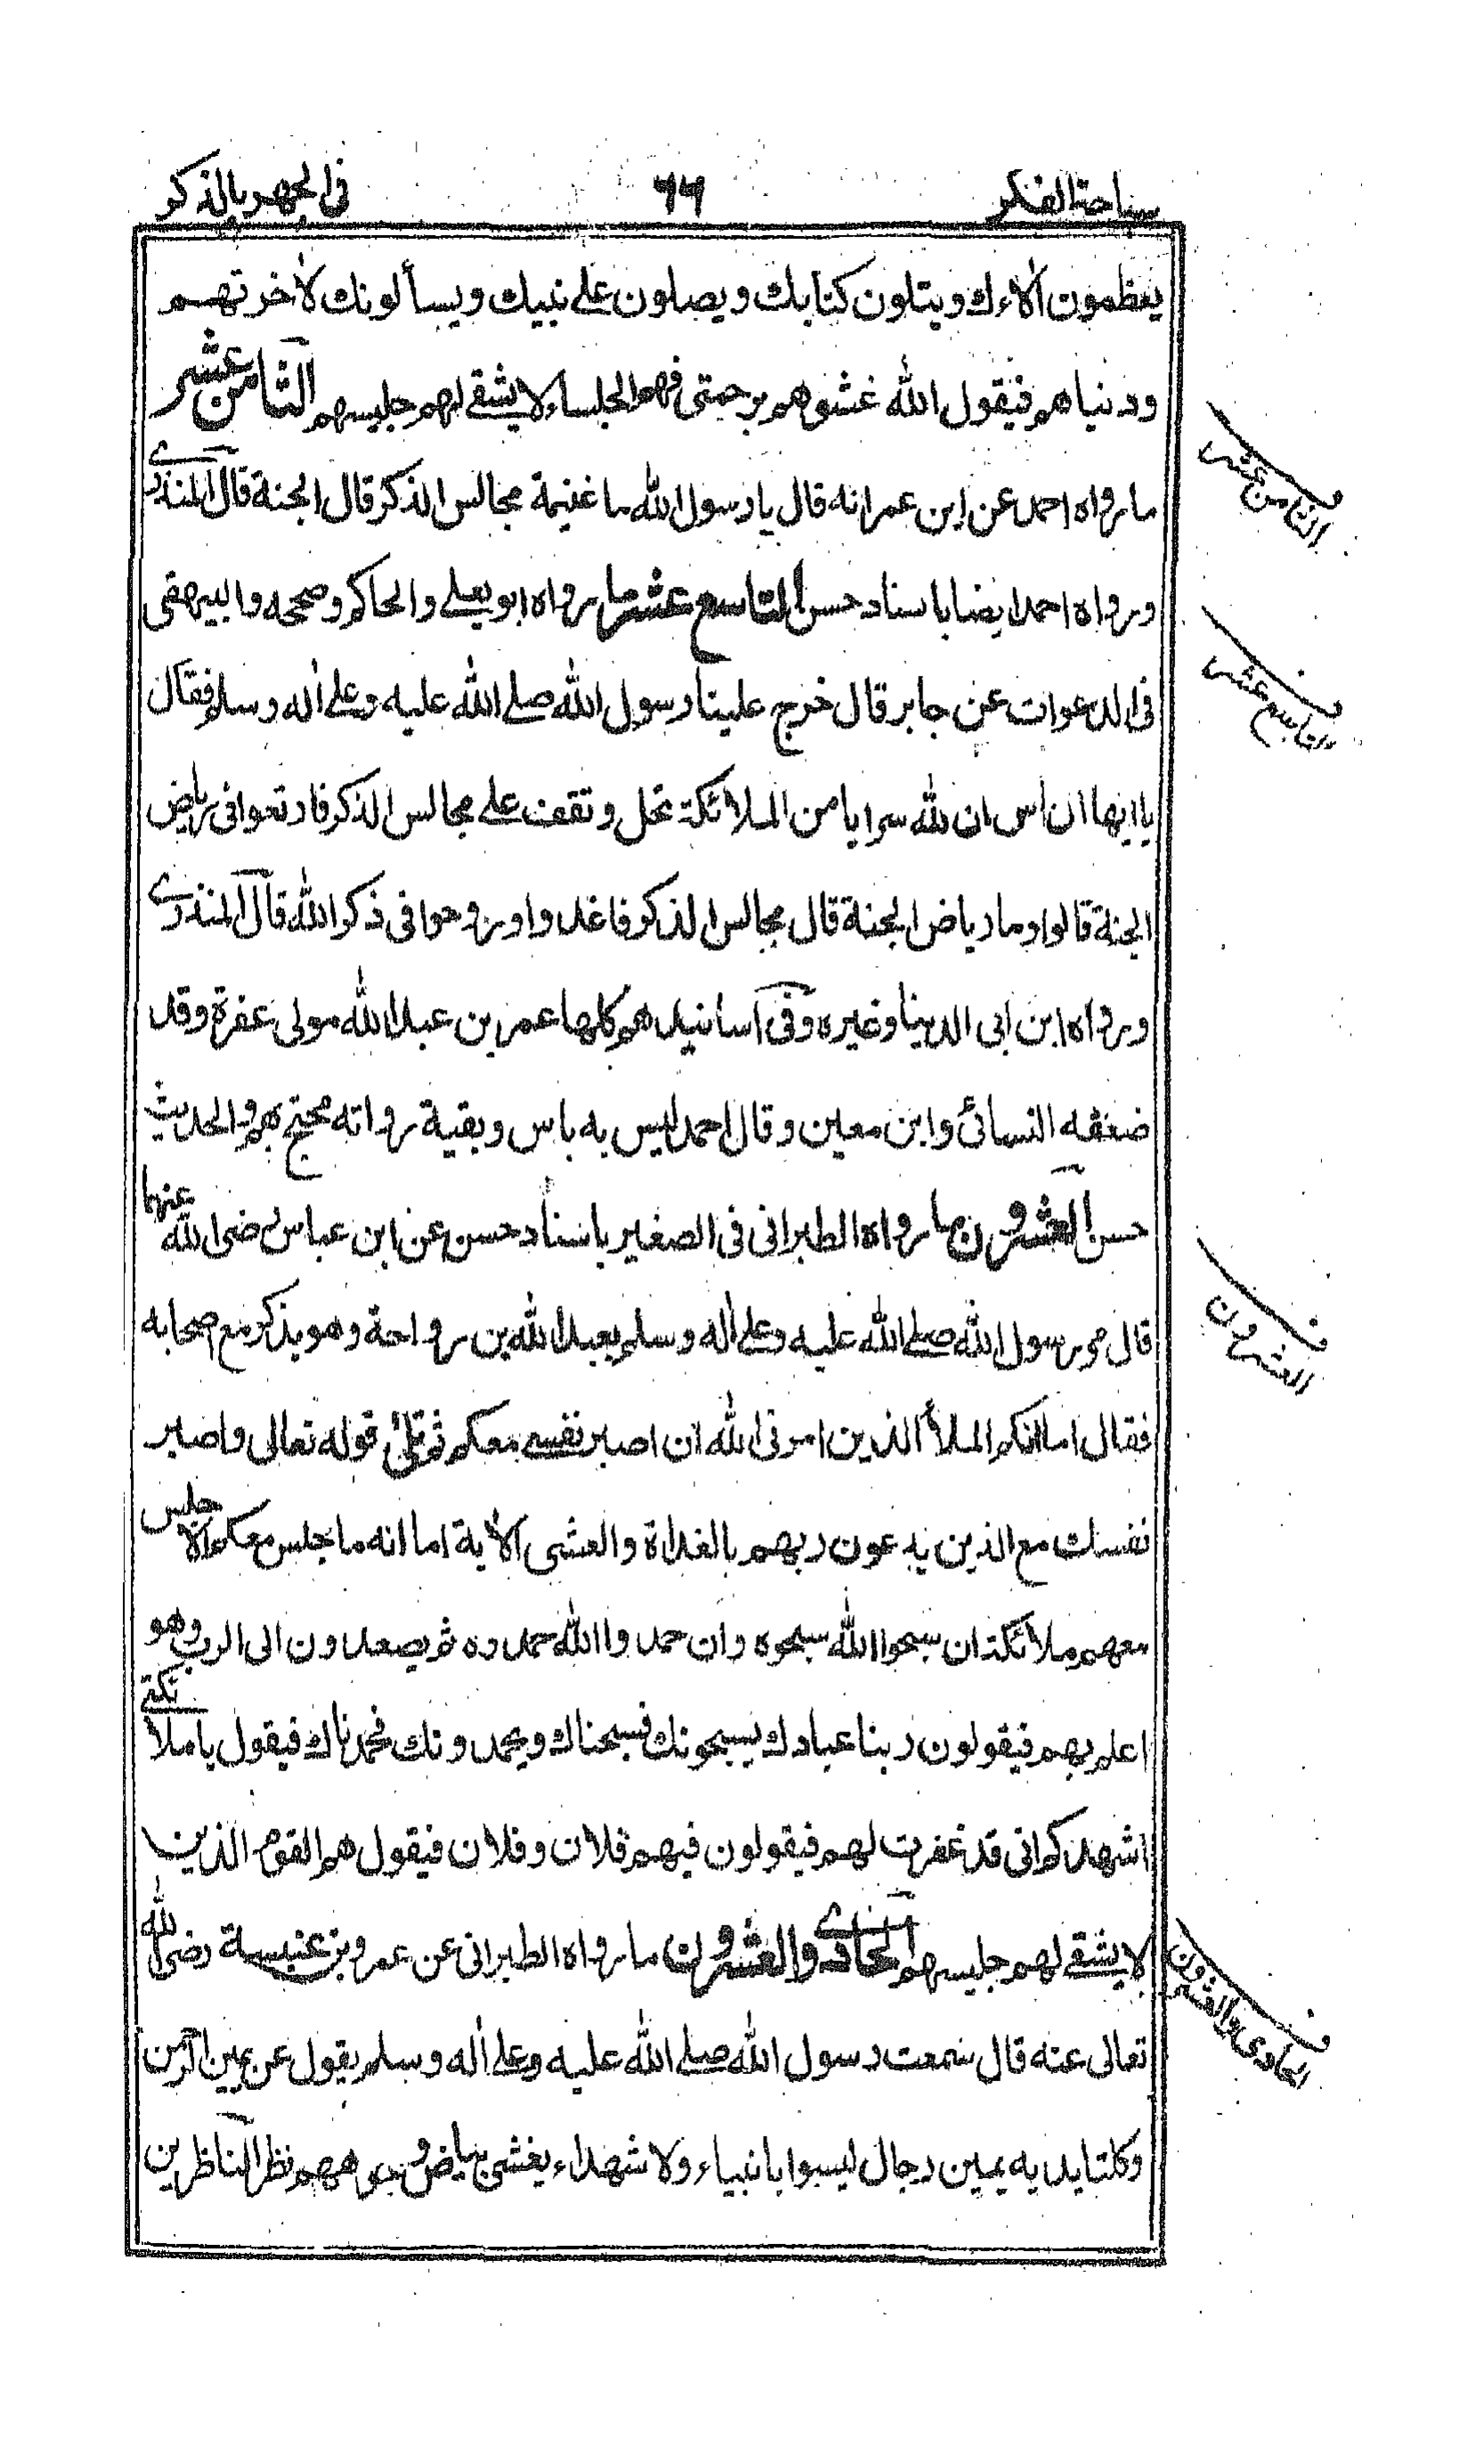 سباحة الفكر ٦٦ فى الجهر بالذكر
يعظمون اٰلاءك ويتلون كتابك ويصلون على نبيك ويسألونك لاٰخرتهم
ودنياهم فيقول الله غشوهم برحمتى فهم الجلساء لا يشقى لهم جليسهم الثامن عشر
ما رواه احمد عن ابن عمر انه قال يا رسول الله ما غنيمة مجالس الذكر قال الجنة قال المنذرى
ورواه احمد ايضا باسناد حسن التاسع عشر ما رواه ابو يعلى والحاكم وصححه والبيهقى
فى الدعوات عن جابر قال خرج علينا رسول الله صلى الله عليه وعلى اٰله وسلم فقال
يا ايها الناس ان لله سرايا من الملائكة تحل وتقف على مجالس الذكر فارتعوا فى رياض
الجنة قالوا وما رياض الجنة قال مجالس الذكر فاغدوا وروحوا فى ذكر الله قال المنذرى
ورواه ابن ابى الدنيا وغيره وفى اسانيدهم كلها عمر بن عبد الله مولى عفرة وقد
ضعفه النسائى وابن معين وقال احمد ليس به باس وبقية رواته محتج بهم والحديث
حسن العشرون ما رواه الطبرانى فى الصغير باسناد حسن عن ابن عباس رضى الله عنهما
قال مر رسول الله صلى الله عليه وعلى اٰله وسلم بعبد الله بن رواحة وهو يذكر مع اصحابه
فقال اما انكم الملأ الذين امرنى الله ان اصبر نفسى معكم ثم تلى قوله تعالى واصبر
نفسك مع الذين يدعون ربهم بالغداة والعشى الاٰية اما انه ما جلس معكم الا جلس
معهم ملائكة ان سبحوا الله سبحوه وان حمدوا الله حمدوه ثم يصعدون الى الرب وهو
اعلم بهم فيقولون ربنا عبادك يسبحونك فسبحناك ويحمدونك فحمدناك فيقول يا ملائكتى
اشهدكم انى قد غفرت لهم فيقولون فيهم فلان وفلان فيقول هم القوم الذين
لا يشقى لهم جليسهم الحادى والعشرون ما رواه الطبرانى عن عمرو بن عنبسة رضى الله
تعالى عنه قال سمعت رسول الله صلى الله عليه وعلى اٰله وسلم يقول عن يمين الرحمن
وكلتا يديه يمين رجال ليسوا بانبياء ولا شهداء يغشى بياض وجوههم نظر الناظرين
الثامن عشر
التاسع عشر
العشرون
الحادى والعشرون